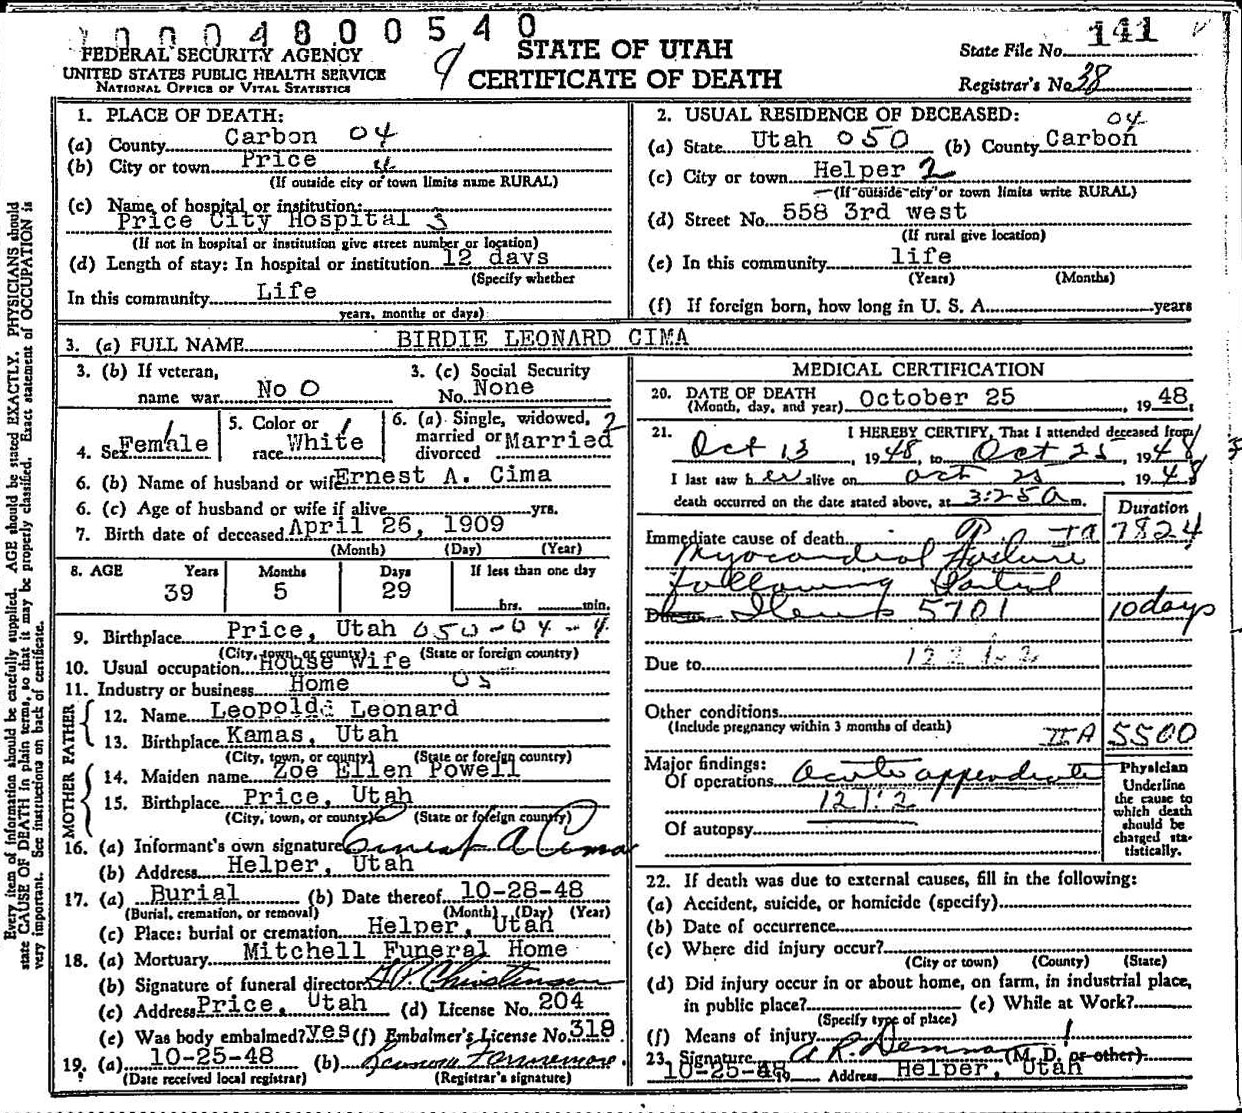 0004800540
FEDERAL SECURITY AGENCY
UNITED STATES PUBLIC HEALTH SERVICE
NATIONAL OFFICE OF VITAL STATISTICS
9
STATE OF UTAH
CERTIFICATE OF DEATH
State File No. 141
Registrar's No. 38
1. PLACE OF DEATH:
(a) County Carbon 04
(b) City or town Price 4
(If outside city or town limits name RURAL)
(c) Name of hospital or institution:
Price City Hospital 3
(If not in hospital or institution give street number or location)
(d) Length of stay: In hospital or institution 12 days
(Specify whether
In this community Life
years, months or days)
2. USUAL RESIDENCE OF DECEASED: 04
(a) State Utah 050 (b) County Carbon
(c) City or town Helper 2
(If outside city or town limits write RURAL)
(d) Street No. 558 3rd west
(If rural give location)
(e) In this community life
(Years) (Months)
(f) If foreign born, how long in U. S. A. years
3. (a) FULL NAME BIRDIE LEONARD CIMA
3. (b) If veteran,
name war No 0
3. (c) Social Security
No. None
4. Sex Female 1
5. Color or
race White 1
6. (a) Single, widowed,
married or
divorced Married 2
6. (b) Name of husband or wife Ernest A. Cima
6. (c) Age of husband or wife if alive yrs.
7. Birth date of deceased April 26, 1909
(Month) (Day) (Year)
8. AGE Years Months Days If less than one day
39 5 29 hrs. min.
9. Birthplace Price, Utah 050-04-4
(City, town, or county) (State or foreign country)
10. Usual occupation House Wife
11. Industry or business Home 05
FATHER
12. Name Leopold Leonard
13. Birthplace Kamas, Utah
(City, town, or county) (State or foreign country)
MOTHER
14. Maiden name Zoe Ellen Powell
15. Birthplace Price, Utah
(City, town, or county) (State or foreign country)
16. (a) Informant's own signature Ernest A Cima
(b) Address Helper, Utah
17. (a) Burial (b) Date thereof 10-28-48
(Burial, cremation, or removal) (Month) (Day) (Year)
(c) Place: burial or cremation Helper, Utah
18. (a) Mortuary Mitchell Funeral Home
(b) Signature of funeral director Christensen
(c) Address Price, Utah (d) License No. 204
(e) Was body embalmed? yes (f) Embalmer's License No. 319
19. (a) 10-25-48 (b)
(Date received local registrar) (Registrar's signature)
MEDICAL CERTIFICATION
20. DATE OF DEATH
(Month, day, and year) October 25, 1948
21. I HEREBY CERTIFY, That I attended deceased from
Oct 13, 1948, to Oct 25, 1948
I last saw her alive on Oct 25 1948
death occurred on the date stated above, at 3:25 a m.
Duration
Immediate cause of death 7824
Myocardial Failure
following Partial
Ileus 5701 10 days
Due to 122.2
Other conditions
(Include pregnancy within 3 months of death)
IIA 5500
Major findings:
Of operations Acute appendicitis
121.2
Of autopsy
Physician
Underline
the cause to
which death
should be
charged sta-
tistically.
22. If death was due to external causes, fill in the following:
(a) Accident, suicide, or homicide (specify)
(b) Date of occurrence
(c) Where did injury occur?
(City or town) (County) (State)
(d) Did injury occur in or about home, on farm, in industrial place,
in public place? (e) While at Work?
(Specify type of place)
(f) Means of injury
23. Signature A R Demman (M. D. or other)
10-25-48 19 Address Helper, Utah
Every item of information should be carefully supplied. AGE should be stated EXACTLY. PHYSICIANS should
state CAUSE OF DEATH in plain terms, so that it may be properly classified. Exact statement of OCCUPATION is
very important. See instructions on back of certificate.